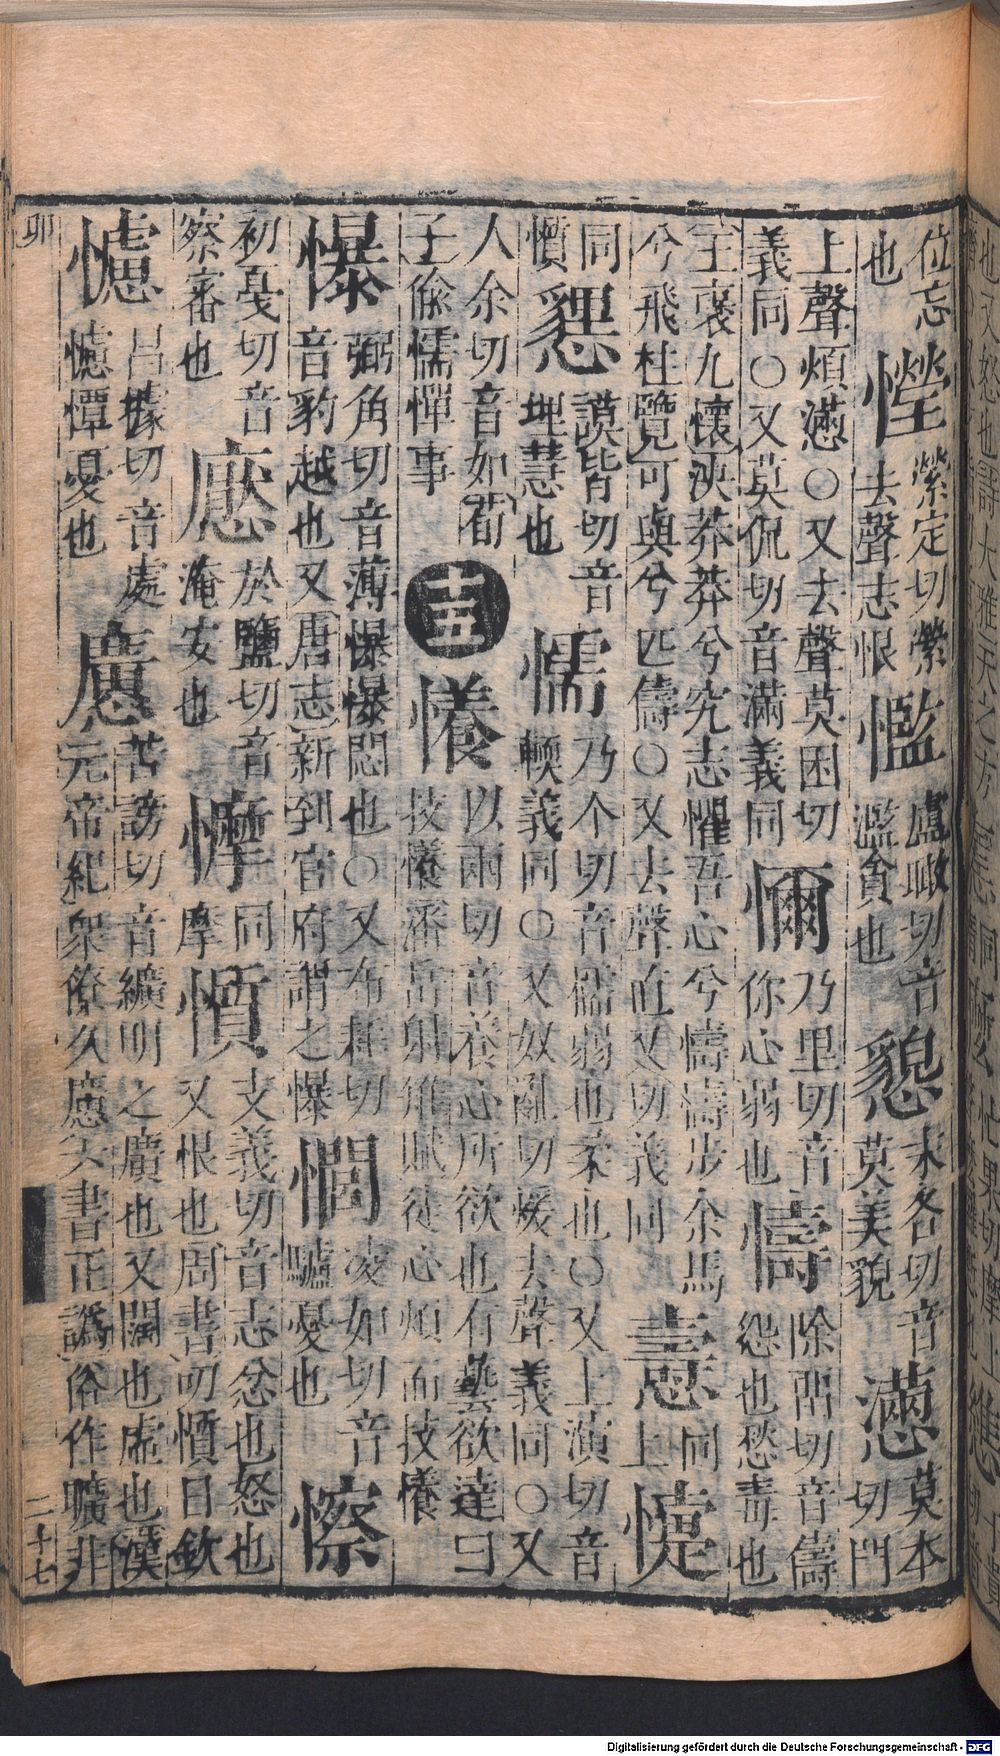 位忘
也
㦦 縈定切縈
去聲志恨
㦨 盧瞰切音
濫貪也
懇 末各切音
莫美貌
懣 莫本切門
上聲煩懣○又去聲莫困切
義同○又莫侃切音滿義同
懰 乃里切音
你心弱也
懤 除留切音儔
怨也愁毒也
王襃九懷泱莽莽兮究志懼吾心兮懤懤步余馬
兮飛柱覽可與兮匹儔○又去聲直又切義同
同上
懥
同
憤
謨皆切音
埋慧也
懦 乃个切音糯弱也柔也○又上演切音
輭義同○又奴亂切煖去聲義同○又
人余切音如荀
子偸懦憚事
十五
懩 以兩切音養心所欲也有藝欲達曰
技懩潘岳射雉賦徒心煩而技懩
懪 弼角切音薄懪懪悶也○又布耗切
音豹越也又唐志新到官府謂之懪
憈 凌如切音
驢憂也
憏 初戛切音
察審也
應 於鹽切音
淹安也
懡 同
摩
懫 支義切音志忿也怒也
又恨也周書叨懫日欽
㦛 呂據切音處
憈憛憂也
懬 苦謗切音纊明之廣也又闊也虛也漢
元帝紀衆僚久懬失書正譌俗作曠非
卯
二十七
Digitalisierung gefördert durch die Deutsche Forschungsgemeinschaft - DFG